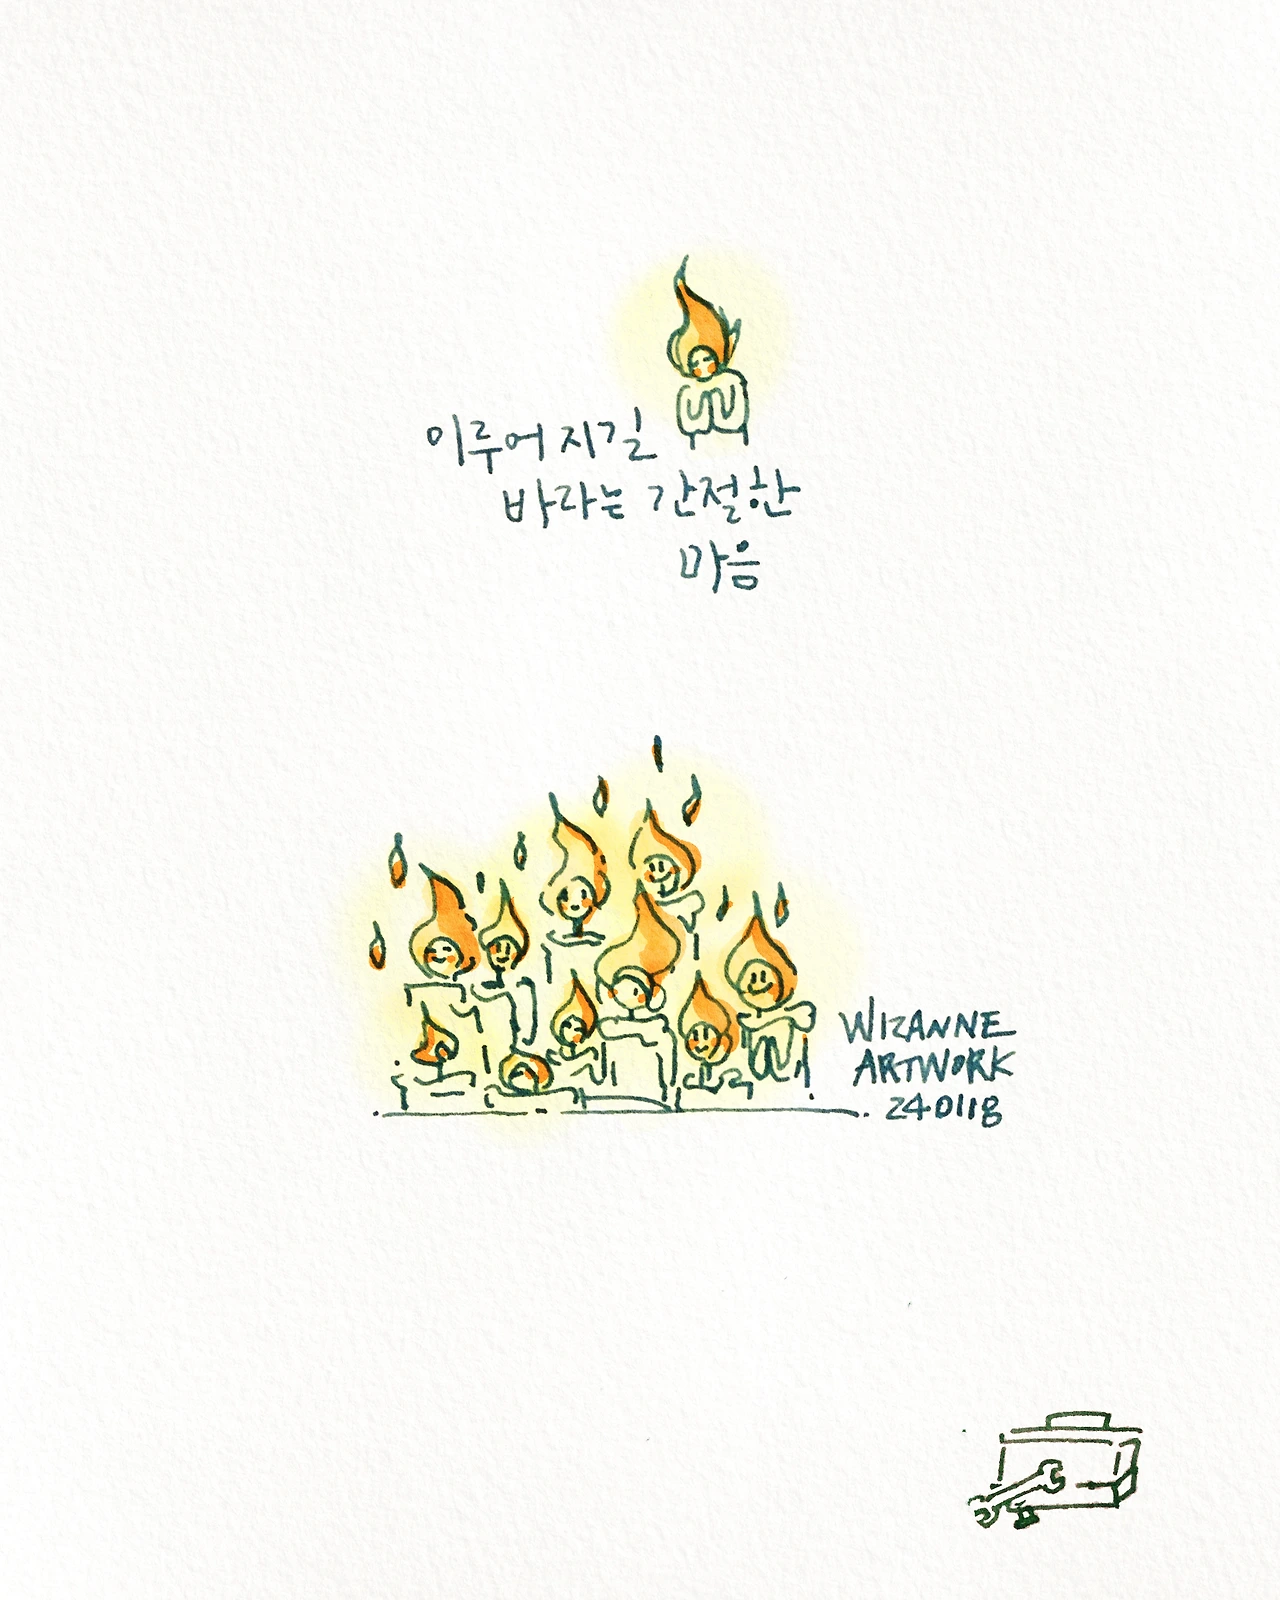 이루어지길
바라는 간절한
마음
WIZANNE
ARTWORK
240118